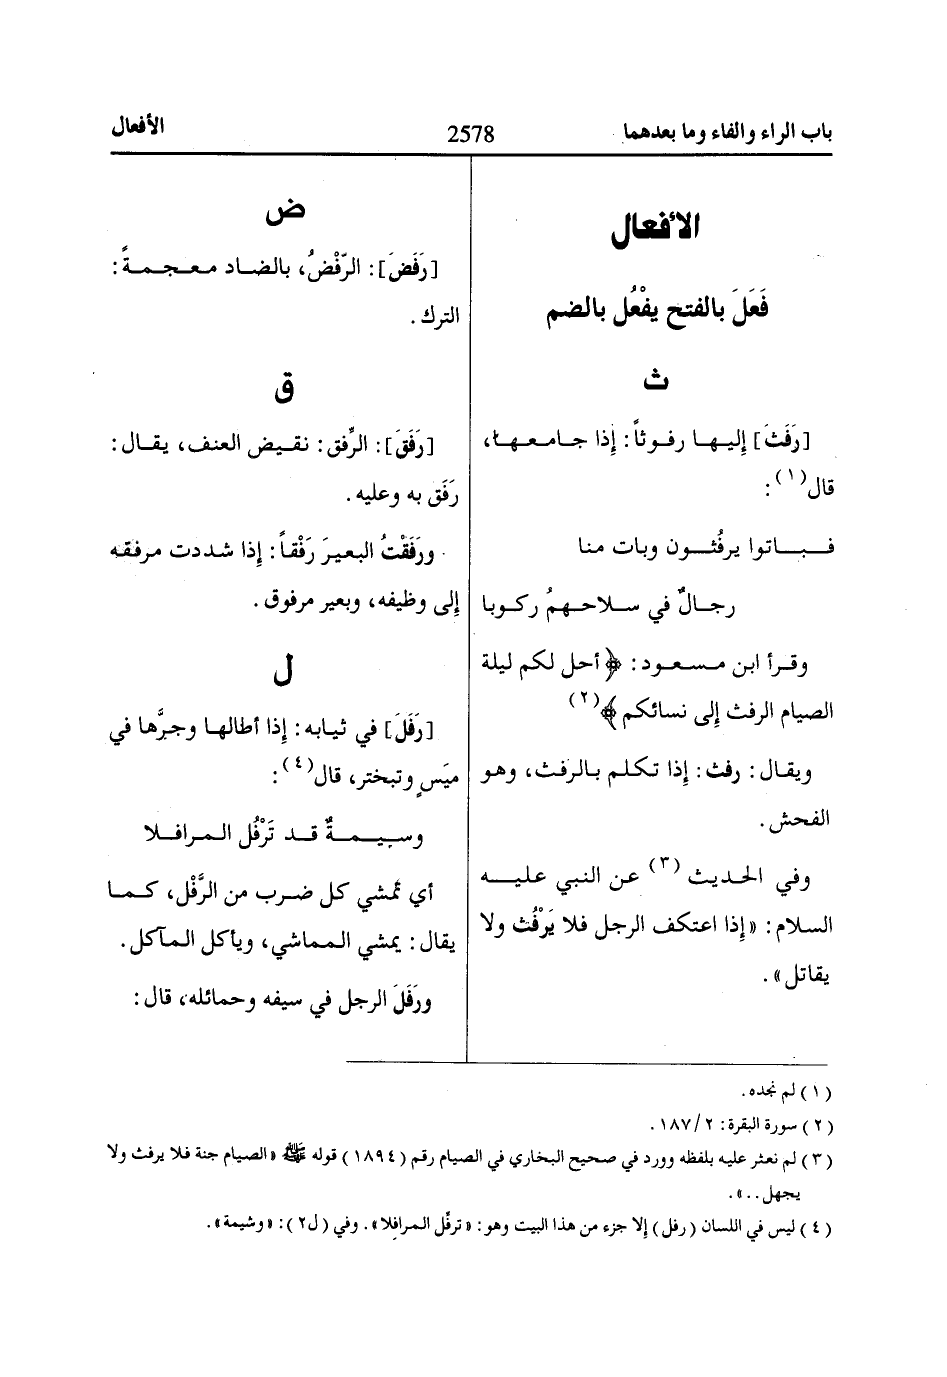 باب الراء والفاء وما بعدهما
2578
الأفعال
الأفعال
فَعَلَ بالفتح يفْعُل بالضم
ث
[رَفَثَ] إليها رفوثاً: إذا جامعها،
قال(١):
فباتوا يرفُثون وبات منا
رجالٌ في سلاحهمُ ركوبا
وقرأ ابن مسعود: ﴿أحل لكم ليلة
الصيام الرفث إلى نسائكم﴾(٢)
ويقال: رفث: إذا تكلم بالرفث، وهو
الفحش.
وفي الحديث (٣) عن النبي عليه
السلام: «إذا اعتكف الرجل فلا يَرْفُث ولا
يقاتل».
ض
[رَفَضَ]: الرّفْضُ، بالضاد معجمةً:
الترك.
ق
[رَفَقَ]: الرِّفق: نقيض العنف، يقال:
رَفَق به وعليه.
ورَفَقْتُ البعيرَ رَفْقاً: إذا شددت مرفقه
إلى وظيفه، وبعير مرفوق.
ل
[رَفَلَ] في ثيابه: إذا أطالها وجرَّها في
ميَسٍ وتبختر، قال(٤):
وسيمةٌ قد تَرْفُل المرافلا
أي تمشي كل ضرب من الرَّفْل، كما
يقال: يمشي المماشي، ويأكل المآكل.
ورَفَلَ الرجل في سيفه وحمائله، قال:
(١) لم نجده.
(٢) سورة البقرة: ٢/ ١٨٧.
(٣) لم نعثر عليه بلفظه وورد في صحيح البخاري في الصيام رقم (١٨٩٤) قوله ﷺ «الصيام جنة فلا يرفث ولا
يجهل..».
(٤) ليس في اللسان (رفل) إلا جزء من هذا البيت وهو: «ترفُل المرافِلا». وفي (ل٢): «وشيمة».